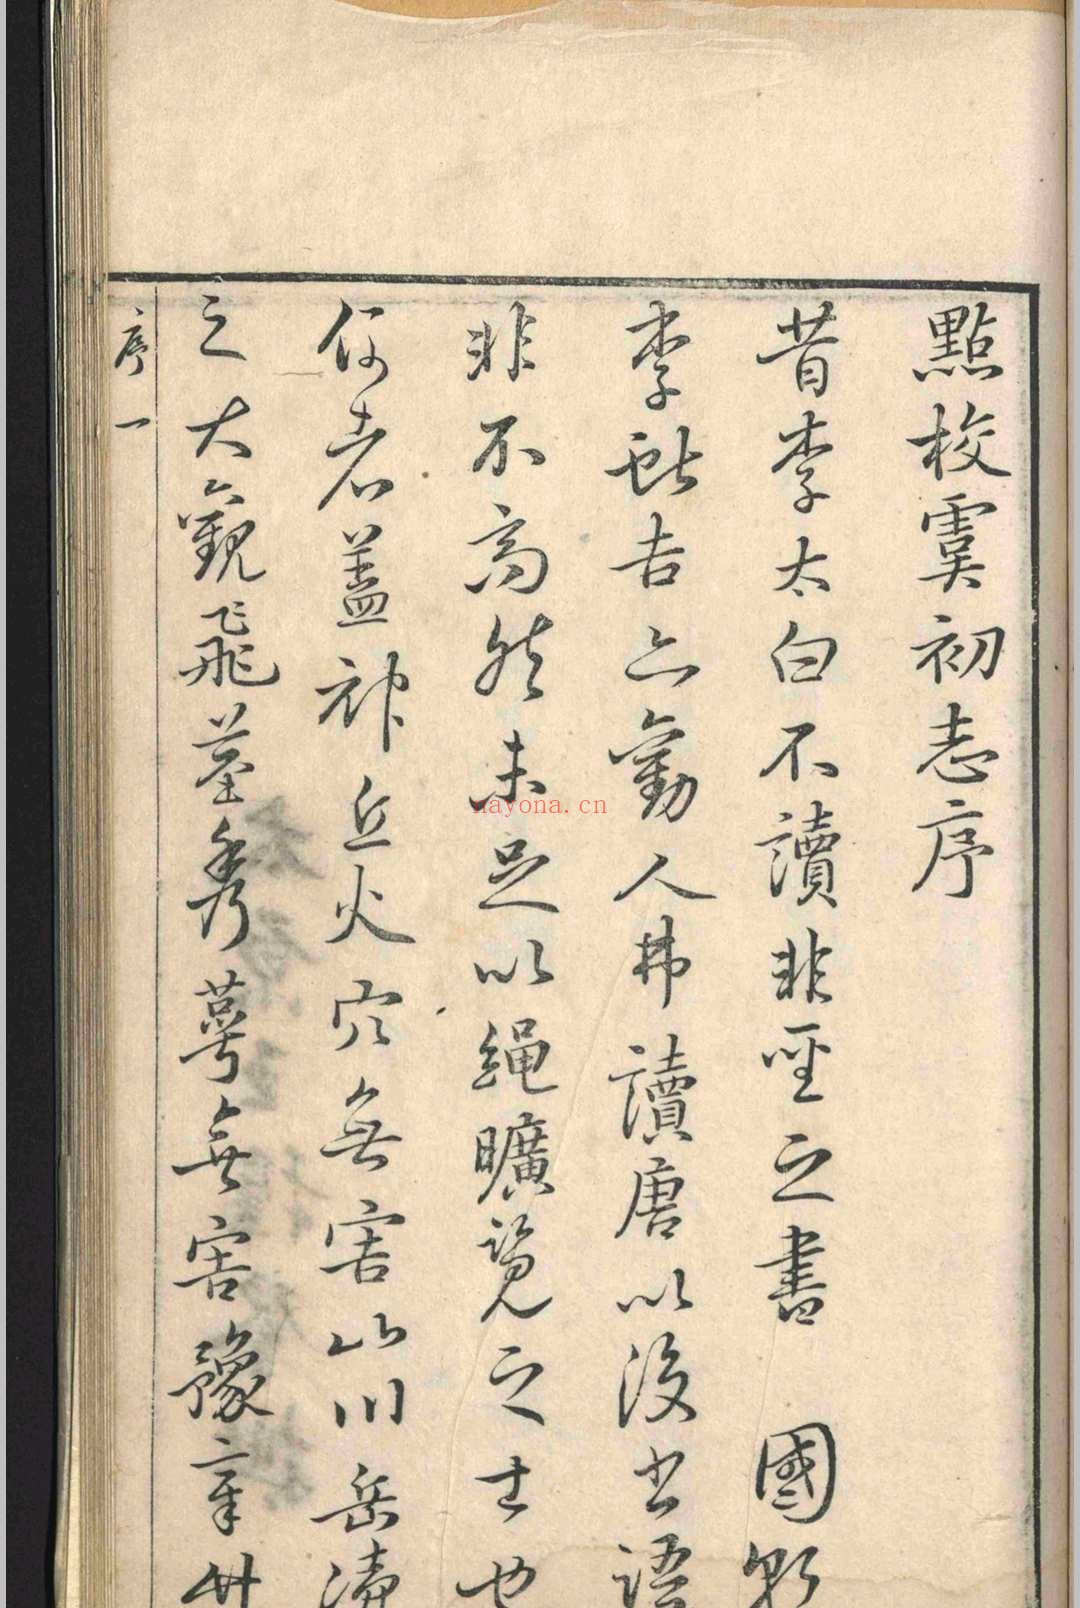 點校虞初志序
昔李太白不讀非聖之書 國朝
李獻吉亦勸人弗讀唐以後書語
非不高然未足以繩曠覽之士也
何者蓋神丘火穴無害山川岳瀆
之大觀飛莖秀萼無害豫章竹
序一
nayona.cn